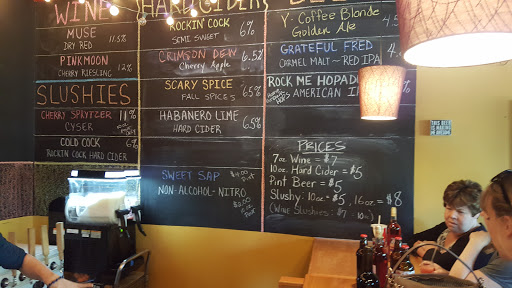 WINE
MUSE 11.5%
DRY RED
PINKMOON
CHERRY RIESLING 12%
SLUSHIES
CHERRY SPRITZER 11%
CYSER
COLD COCK 6%
ROCKIN COCK HARD CIDER
HARD CIDER
ROCKIN' COCK 6%
SEMI SWEET
CRIMSON DEW 6.5%
Cherry Apple
SCARY SPICE 6.5%
FALL SPICES
HABANERO LIME 6.5%
HARD CIDER
SWEET SAP $4.00
NON-ALCOHOL-NITRO
$2.00
Y-Coffee Blonde
Golden Ale
GRATEFUL FRED
CARMEL MALT~RED IPA
ROCK ME HOPADU
AMERICAN
PRICES
7oz Wine = $7
10oz. Hard Cider = $5
Pint Beer = $5
Slushy: 10oz = $5, 16oz = $8
(Wine Slushies: $7 - 10oz)
THIS BEER
IS MAKING
ME AWESOME